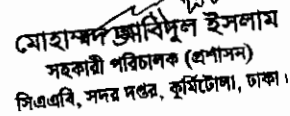 মোহাম্মদ আবিদুল ইসলাম
সহকারী পরিচালক (প্রশাসন)
সিএএবি, সদর দপ্তর, কুর্মিটোলা, ঢাকা।